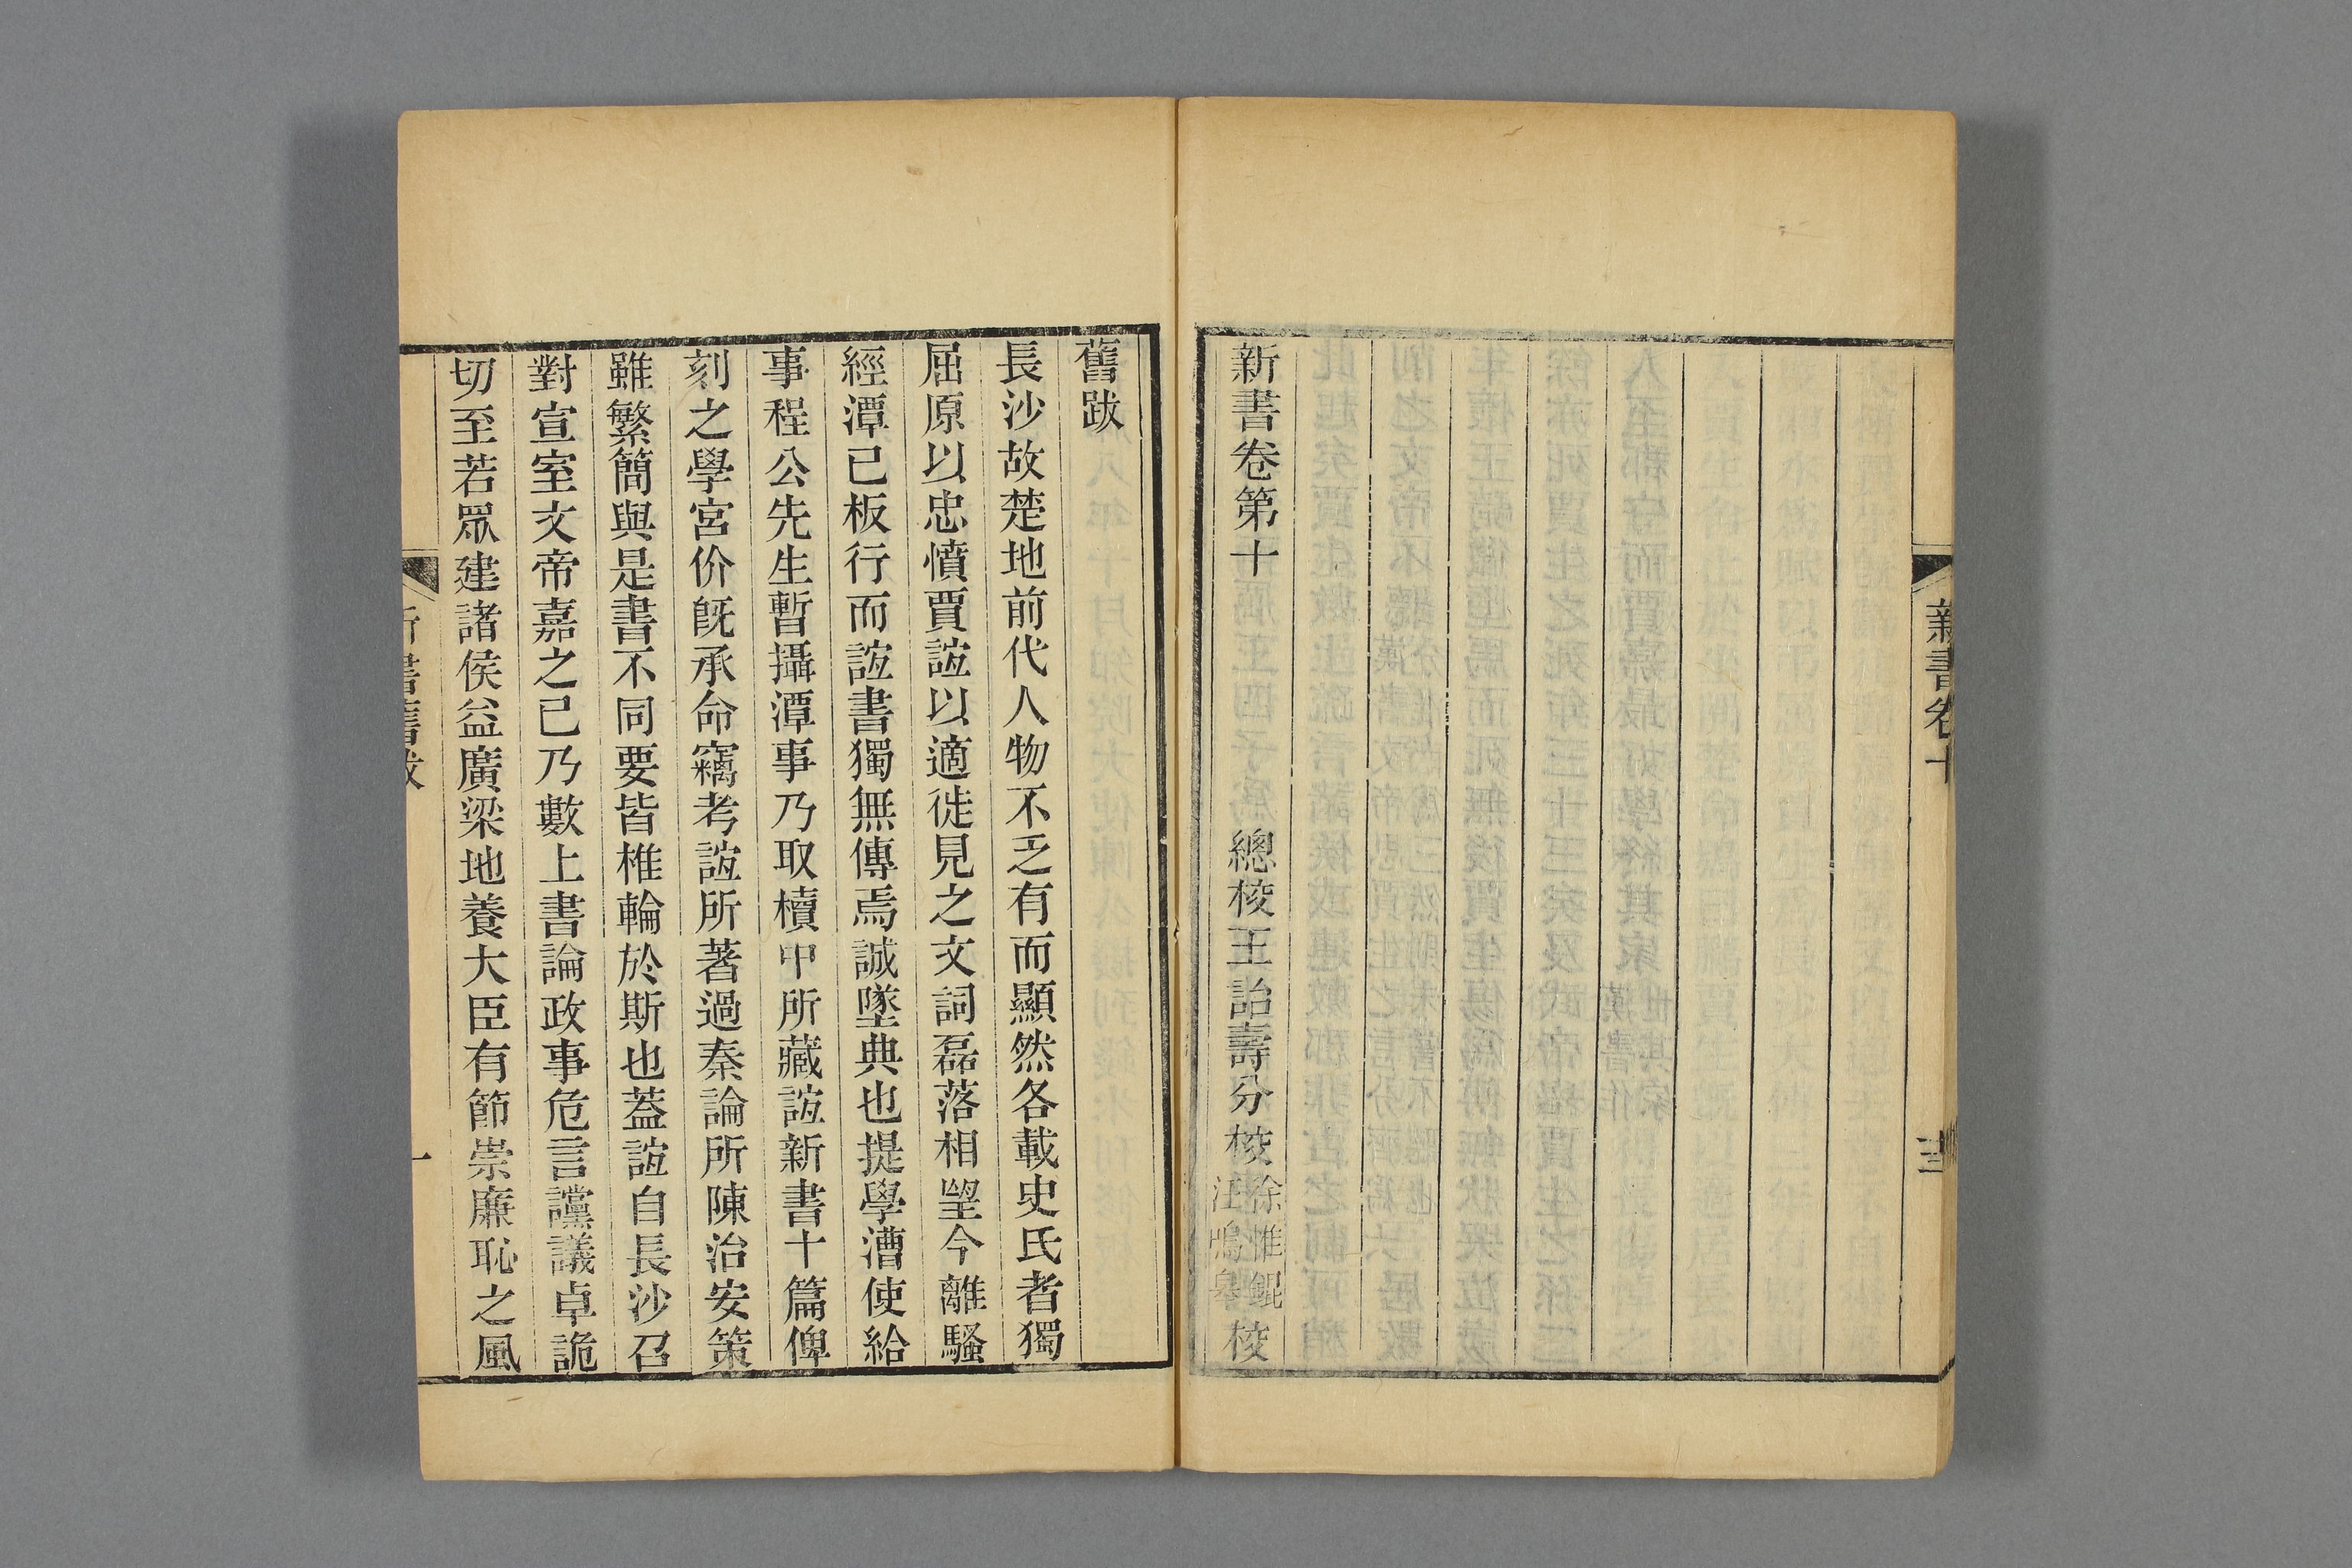 新書卷十
新書卷第十
總校王詒壽分校徐惟錕汪鳴皋校
舊跋
長沙故楚地前代人物不乏有而顯然各載史氏者獨
屈原以忠憤賈誼以適徙見之文詞磊落相望今離騷
經潭已板行而誼書獨無傳焉誠墜典也提學漕使給
事程公先生暫攝潭事乃取櫝中所藏誼新書十篇俾
刻之學宮价旣承命竊考誼所著過秦論所陳治安策
雖繁簡與是書不同要皆椎輪於斯也葢誼自長沙召
對宣室文帝嘉之已乃數上書論政事危言讜議卓詭
切至若眾建諸侯益廣梁地養大臣有節崇廉恥之風
新書舊跋
一